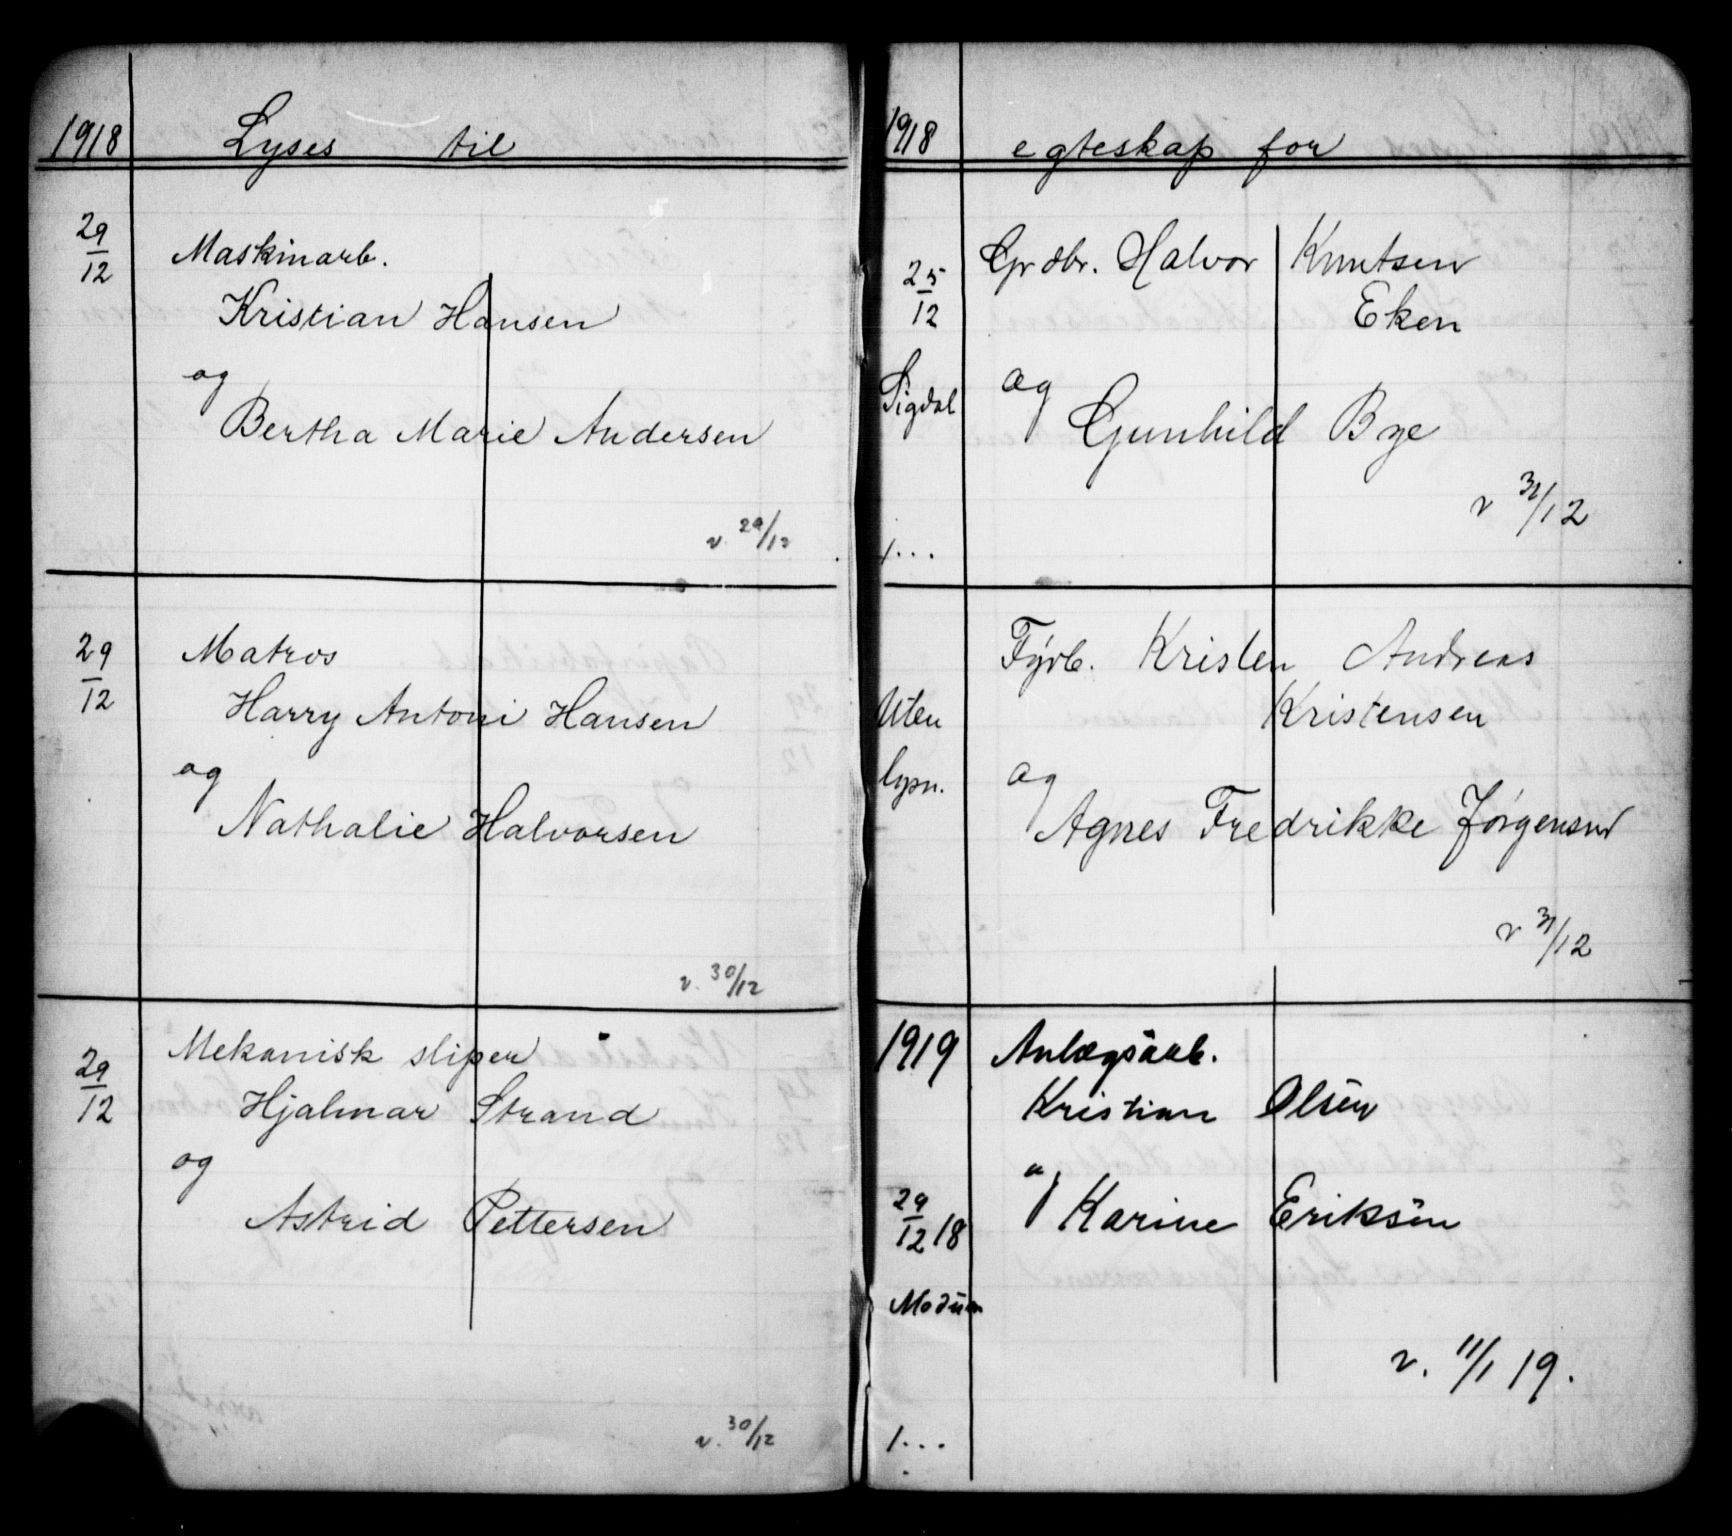 1918 Lyses til
29/12 Maskinarb.
Kristian Hansen
og
Bertha Marie Andersen
v. 29/12
29/12 Matros
Harry Antoni Hansen
og
Nathalie Halvorsen
v. 30/12
29/12 Mekanisk sliper
Hjalmar Strand
og
Astrid Pettersen
v. 30/12
1918 egteskap for
25/12 Grdbr. Halvor Knutsen
Eken
Sigdal og
Gunhild Bye
v 31/12
1...
Fyrb. Kristen Andreas
Uten Kristensen
lysn. og
Agnes Fredrikke Jørgensen
v 31/12
1919 Anlægsarb.
Kristian Olsen
og
29/12 18 Karine Eriksen
Modum
v. 11/1 19.
1...